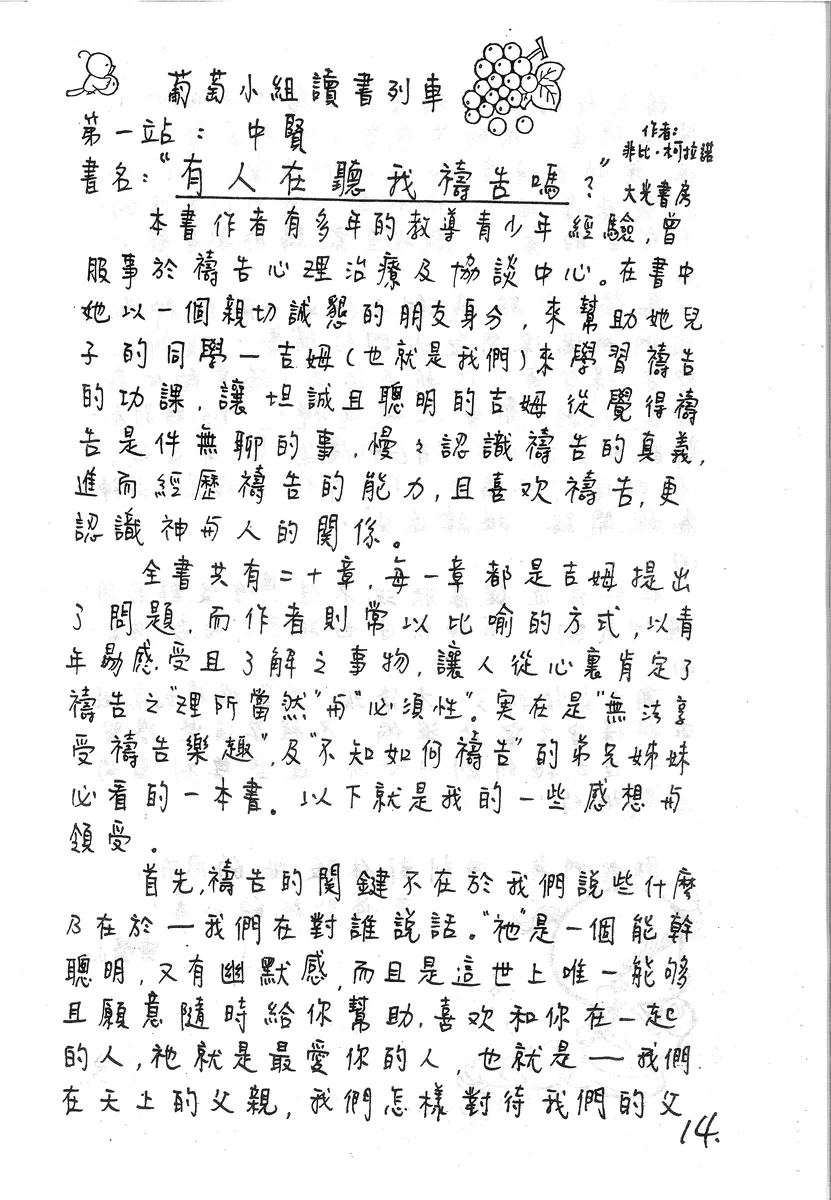 葡萄小組讀書列車
第一站： 中賢
作者：
非比·柯拉諾
書名："有人在聽我禱告嗎？"
大光書房
本書作者有多年的教導青少年經驗，曾
服事於禱告心理治療及協談中心。在書中
她以一個親切誠懇的朋友身分，來幫助她兒
子的同學－吉姆(也就是我們)來學習禱告
的功課，讓坦誠且聰明的吉姆從覺得禱
告是件無聊的事，慢々認識禱告的真義，
進而經歷禱告的能力，且喜欢禱告，更
認識神与人的関係。
全書共有二十章，每一章都是吉姆提出
了問題，而作者則常以比喻的方式，以青
年易感受且了解之事物，讓人從心裏肯定了
禱告之"理所當然"与"必須性"。実在是"無法享
受禱告樂趣"，及"不知如何禱告"的弟兄姊妹
必看的一本書。以下就是我的一些感想与
領受。
首先，禱告的関鍵不在於我們說些什麼
乃在於－我們在對誰說話。"祂"是一個能幹
聰明，又有幽默感，而且是這世上唯一能够
且願意隨時給你幫助，喜欢和你在一起
的人，祂就是最愛你的人，也就是－我們
在天上的父親，我們怎樣對待我們的父
14.